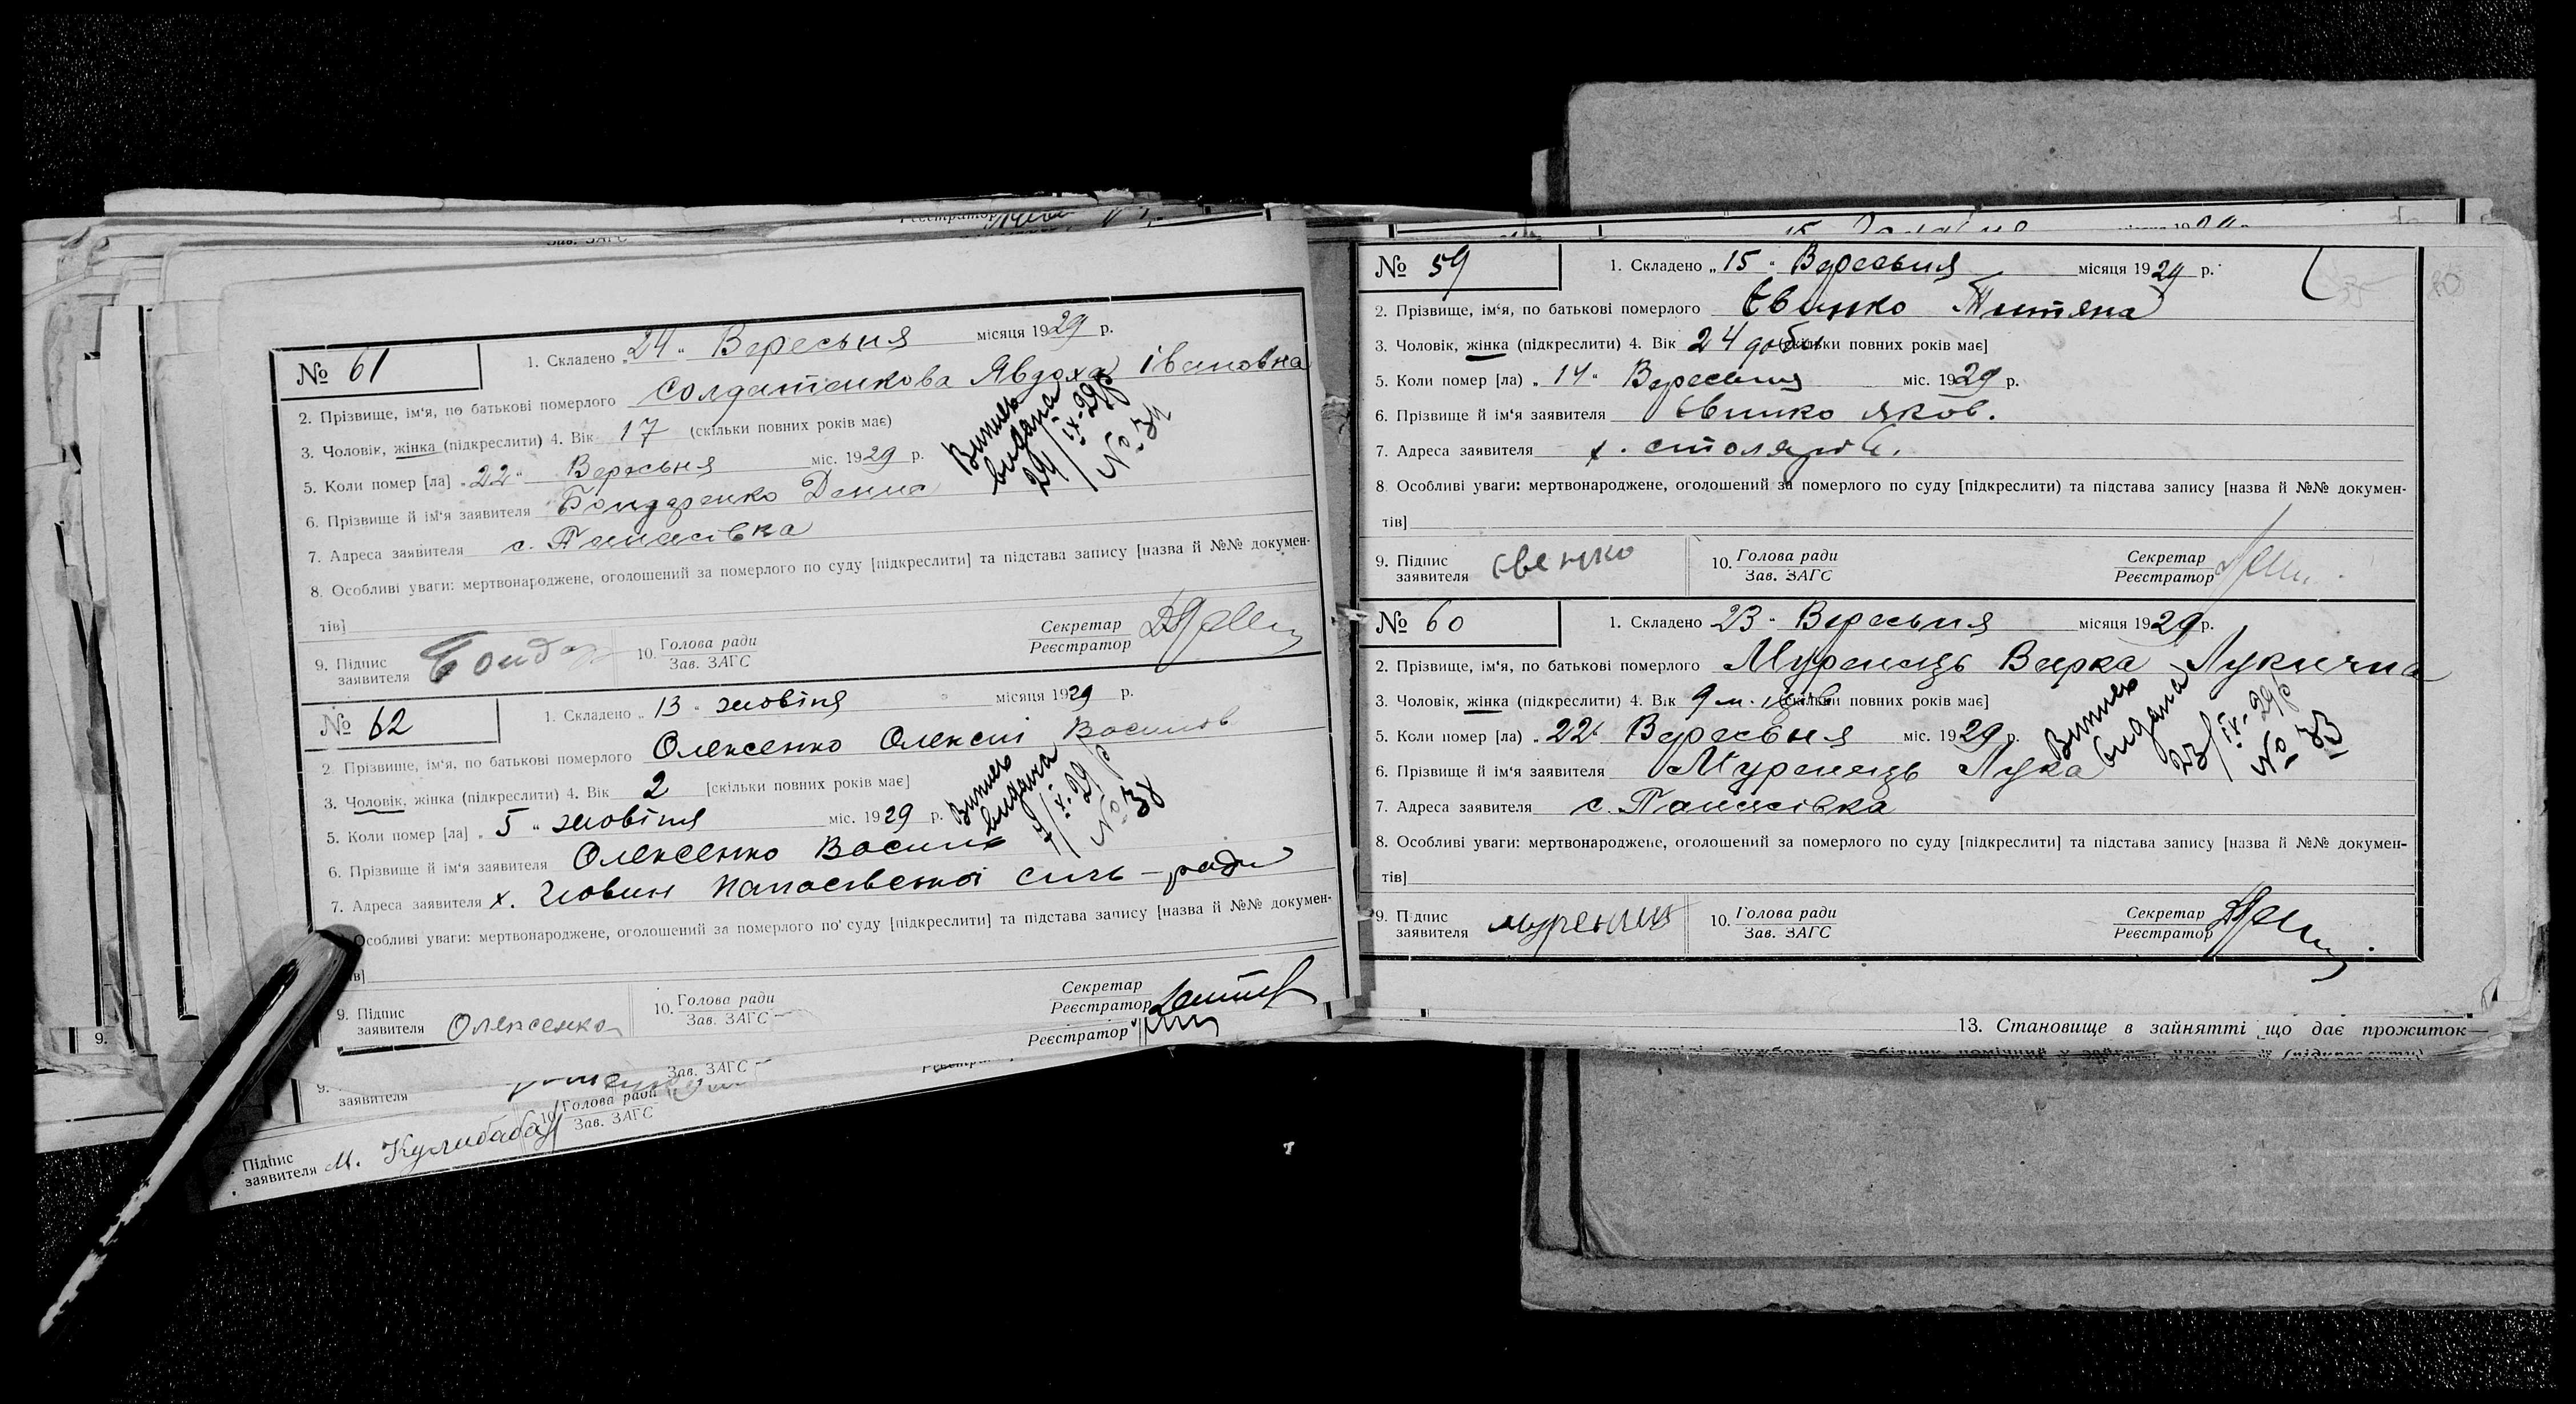 № 61
1. Складено „24" Вересьня місяця 1929 р.
2. Прізвище, ім'я, по батькові померлого Солдатенкова Явдоха Івановна
3. Чоловік, жінка (підкреслити) 4. Вік 17 (скільки повних років має)
5. Коли помер [ла] „22" Вересьня міс. 1929 р.
Випись видана 24/IX-29 р № 34
6. Прізвище й ім'я заявителя Бондаренко
7. Адреса заявителя с. Панасівка
8. Особливі уваги: мертвонароджене, оголошений за померлого по суду [підкреслити] та підстава запису [назва й №№ докумен-
тів]
9. Підпис заявителя Бондар
10. Голова ради
Зав. ЗАГС
Секретар
Реєстратор
№ 62
1. Складено „13" жовтня місяця 1929 р.
2. Прізвище, ім'я, по батькові померлого Олексенко Олексій Васильов
3. Чоловік, жінка (підкреслити) 4. Вік 2 [скільки повних років має]
5. Коли помер [ла] „5" жовтня міс. 1929 р.
Випись видана 7/X-29 р № 38
6. Прізвище й ім'я заявителя Олексенко Василь
7. Адреса заявителя х. Панасівської силь-ради
Особливі уваги: мертвонароджене, оголошений за померлого по суду [підкреслити] та підстава запису [назва й №№ докумен-
ів]
9. Підпис заявителя Олексенко
10. Голова ради
Зав. ЗАГС
Секретар
Реєстратор
Реєстратор
9.
заявителя
Зав. ЗАГС
Підпис
заявителя М. Кулибаба
10. Голова ради
Зав. ЗАГС
9.
№ 59
1. Складено „15" Вересьня місяця 1929 р.
2. Прізвище, ім'я, по батькові померлого Євинко Титяна
3. Чоловік, жінка (підкреслити) 4. Вік 24 доби (скільки повних років має]
5. Коли помер (ла) „14" Вересьня міс. 1929 р.
6. Прізвище й ім'я заявителя Євинко Яков.
7. Адреса заявителя х. Столярів.
8. Особливі уваги: мертвонароджене, оголошений за померлого по суду [підкреслити) та підстава запису [назва й №№ докумен-
тів]
9. Підпис заявителя Євенко
10. Голова ради
Зав. ЗАГС
Секретар
Реєстратор
№ 60
1. Складено 23" Вересьня місяця 1929 р.
2. Прізвище, ім'я, по батькові померлого Муренець Варка Лукична
3. Чоловік, жінка (підкреслити) 4. Вік 9 м. (скільки повних років має]
5. Коли помер (ла) „22" Вересьня міс. 1929 р.
Випись видана 23/IX-29 р № 33
6. Прізвище й ім'я заявителя Муренець Лука
7. Адреса заявителя с. Панасівка
8. Особливі уваги: мертвонароджене, оголошений за померлого по суду [підкреслити] та підстава запису [назва й №№ докумен-
тів]
9. Підпис заявителя Муренец
10. Голова ради
Зав. ЗАГС
Секретар
Реєстратор
13. Становище в зайнятті що дає прожиток—